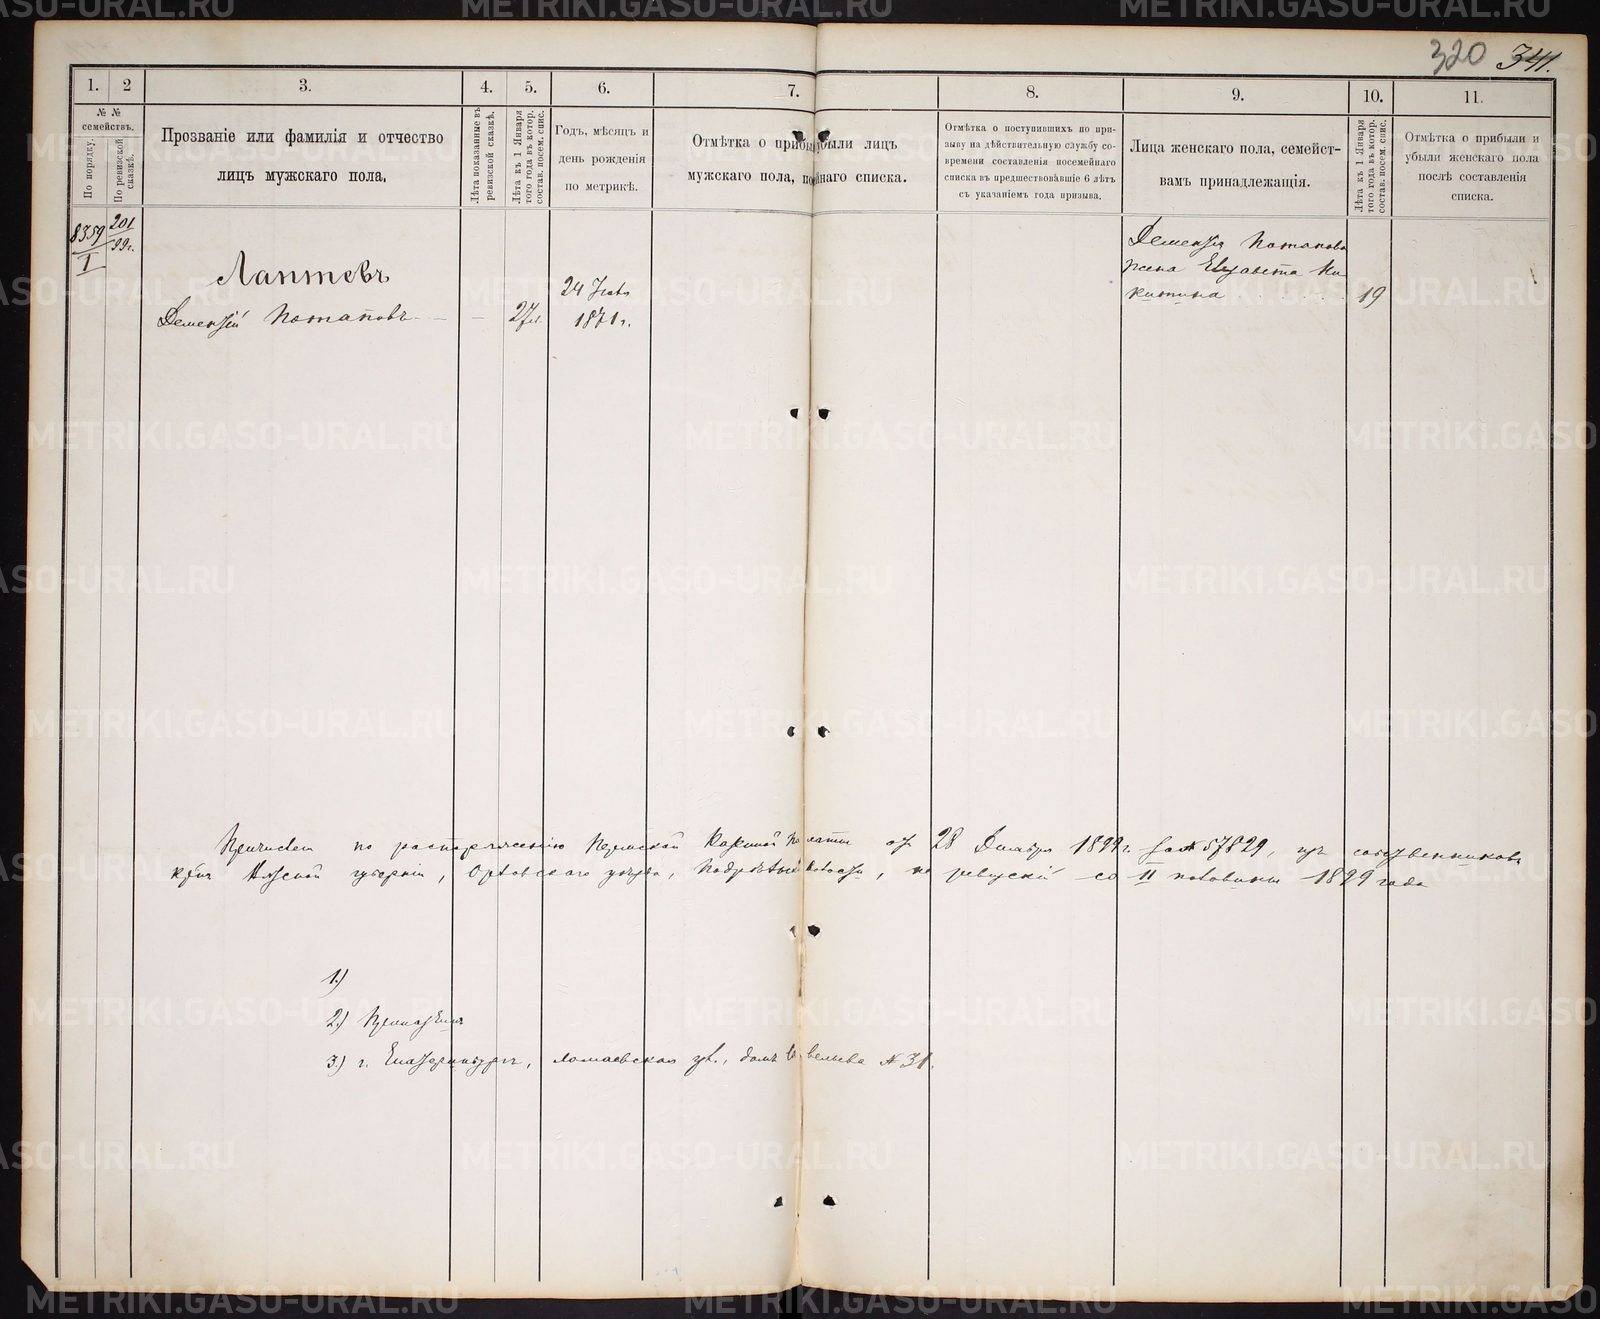 320 341.
1. 2 3. 4. 5. 6. 7. 8. 9. 10. 11.
№ №
семействъ.
По порядку.
По ревизской сказкѣ.
Прозваніе или фамилія и отчество
лицъ мужскаго пола.
Лѣта показанные въ
ревизской сказкѣ.
Лѣта къ 1 Января
того года въ котор.
состав. посем. спис.
Годъ, мѣсяцъ и
день рожденія
по метрикѣ.
Отмѣтка о прибы убыли лицъ
мужскаго пола, по йнаго списка.
Отмѣтка о поступившихъ по при-
зыву на дѣйствительную службу со-
времени составленія посемейнаго
списка въ предшествовавшіе 6 лѣтъ
съ указаніемъ года призыва.
Лица женскаго пола, семейст-
вамъ принадлежащія.
Лѣта къ 1 Января
того года въ котор.
состав. посем. спис.
Отмѣтка о прибыли и
убыли женскаго пола
послѣ составленія
списка.
8359
I
201
99г.
Лаптевъ
Дементій Потаповъ - - 27 л.
24
1871 г.
Дементія Потапова
жена Елизавета Ни
китина 19
Причислен по распоряженію Пермской Казенной Палаты от 28 Декабря 1899 г. за № 57829, из собственников
крест. Вятской губерніи, Орловскаго уѣзда, волости, по съ II половины 1899 года
1.)
2.)
3.) г. Екатеринбургъ, ул., домъ № 31.
METRIKI.GASO-URAL.RU